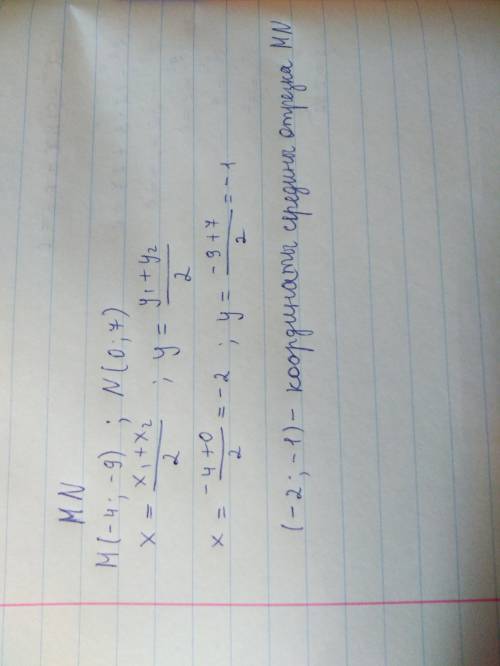 MN
M(-4; -9) ; N(0; 7)
x = (x₁+x₂)/2 ; y = (y₁+y₂)/2
x = (-4+0)/2 = -2 ; y = (-9+7)/2 = -1
(-2; -1) - координаты середины отрезка MN